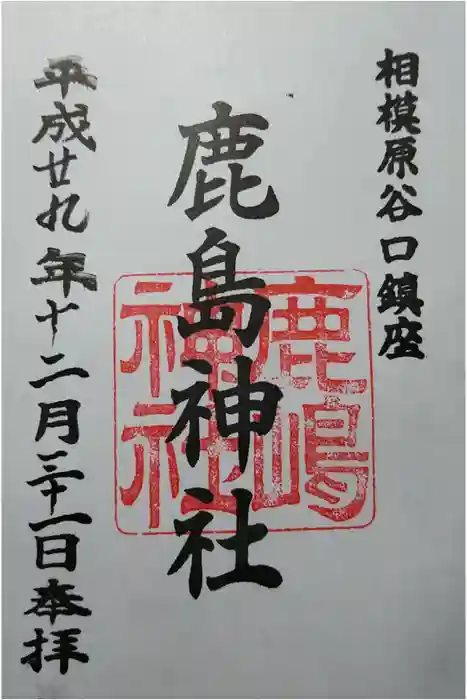 相模原谷口鎮座
鹿島神社
鹿嶋
神社
平成廿九年十二月三十一日奉拝